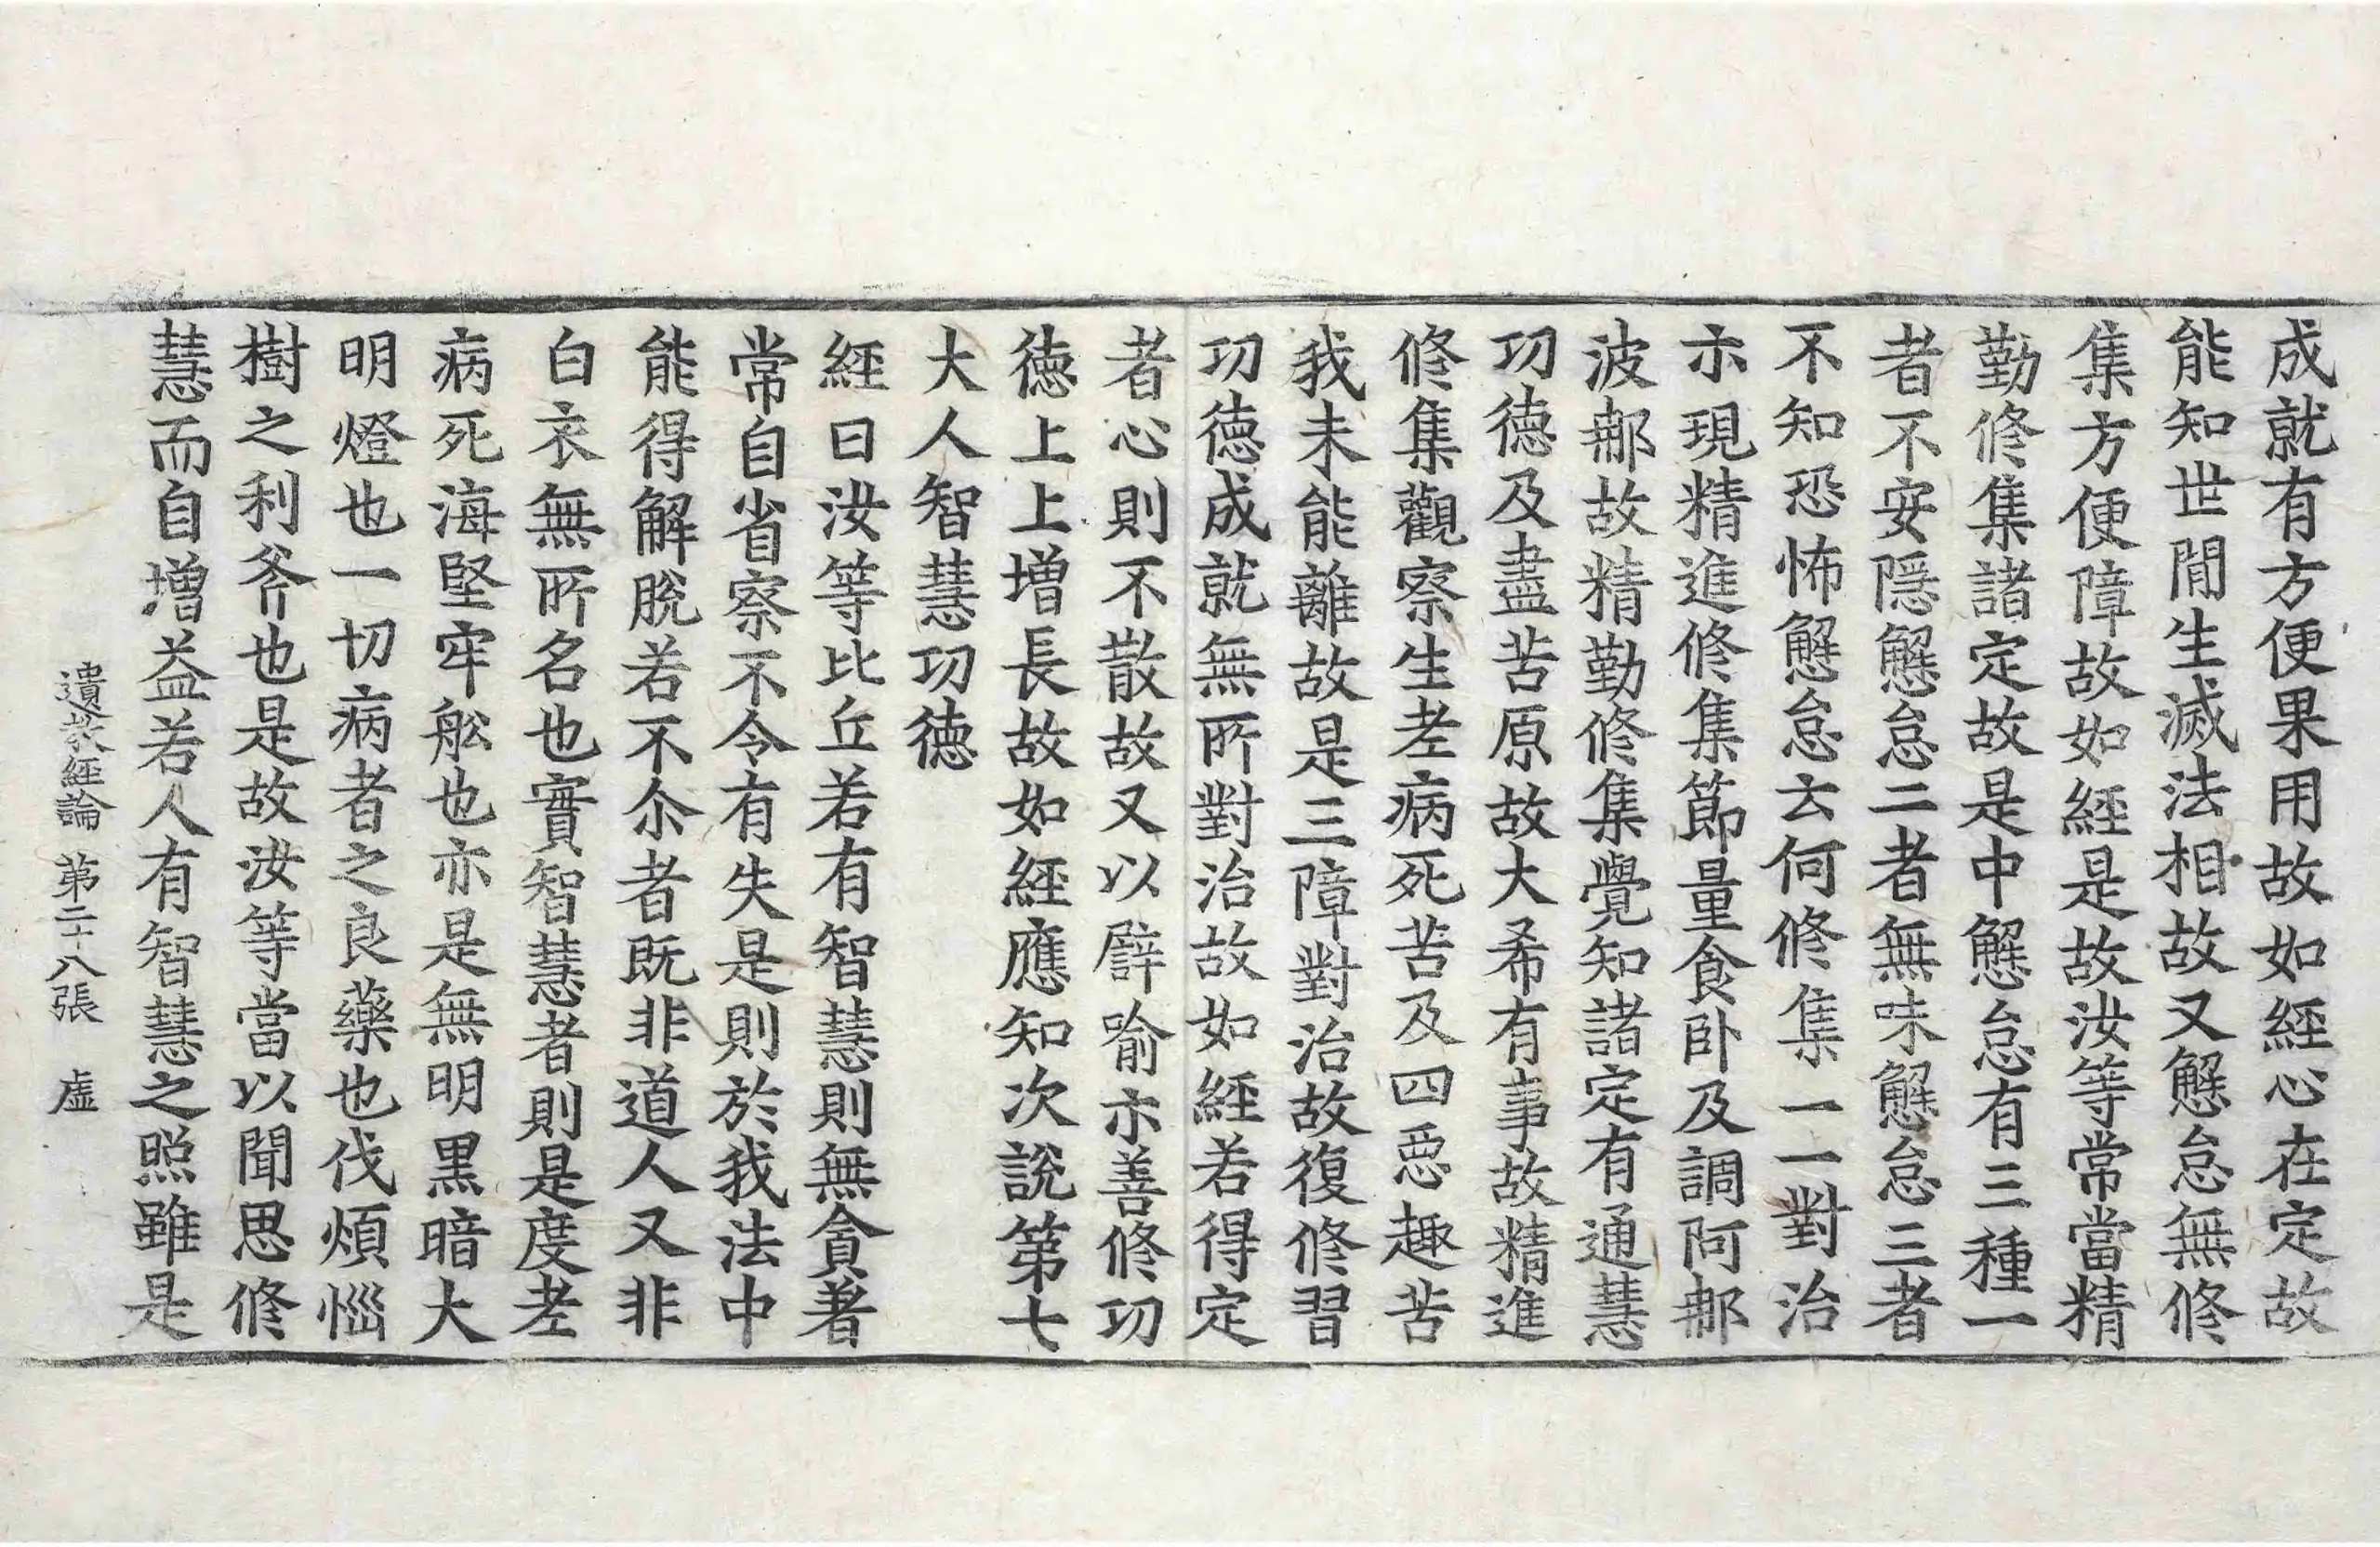 成就有方便果用故如經心在定故
能知世間生滅法相故又懈怠無修
集方便障故如經是故汝等常當精
勤修集諸定故是中懈怠有三種一
者不安隱懈怠二者無味懈怠三者
不知恐怖懈怠云何修集一一對治
示現精進修集節量食卧及調阿那
波那故精勤修集覺知諸定有通慧
功德及盡苦原故大希有事故精進
修集觀察生老病死苦及四惡趣苦
我未能離故是三障對治故復修習
功德成就無所對治故如經若得定
者心則不散故又以譬喻示善修功
德上上增長故如經應知次說第七
大人智慧功德
經曰汝等比丘若有智慧則無貪著
常自省察不令有失是則於我法中
能得解脫若不尒者既非道人又非
白衣無所名也實智慧者則是度老
病死海堅牢舩也亦是無明黑暗大
明燈也一切病者之良藥也伐煩惱
樹之利斧也是故汝等當以聞思修
慧而自增益若人有智慧之照雖是
遺教經論 第二十八張 虛